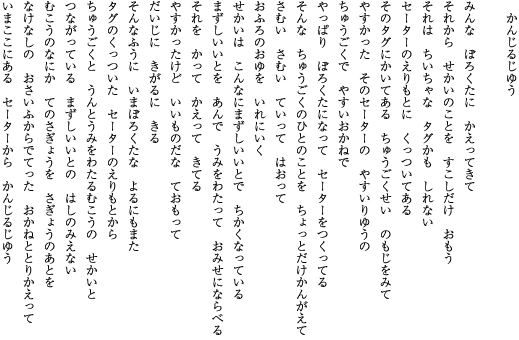 かんじるじゆう
みんな　ぼろくたに　かえってきて
それから　せかいのことを　すこしだけ　おもう
それは　ちいちゃな　タグかも　しれない
セーターのえりもとに　くっついてある
そのタグにかいてある　ちゅうごくせい　のもじをみて
やすかった　そのセーターの　やすいりゆうの
ちゅうごくで　やすいおかねで
やっぱり　ぼろくたになって　セーターをつくってる
そんな　ちゅうごくのひとのことを　ちょっとだけかんがえて
さむい　さむい　ていって　はおって
おふろのおゆを　いれにいく
せかいは　こんなにまずしいいとで　ちかくなっている
まずしいいとを　あんで　うみをわたって　おみせにならべる
それを　かって　かえって　きてる
やすかったけど　いいものだな　ておもって
だいじに　きがるに　きる
そんなふうに　いまぼろくたな　よるにもまた
タグのくっついた　セーターのえりもとから
ちゅうごくと　うんとうみをわたるむこうの　せかいと
つながっている　まずしいいとの　はしのみえない
むこうのなにか　てのさぎょうを　さぎょうのあとを
なけなしの　おさいふからでてった　おかねととりかえって
いまここにある　セーターから　かんじるじゆう